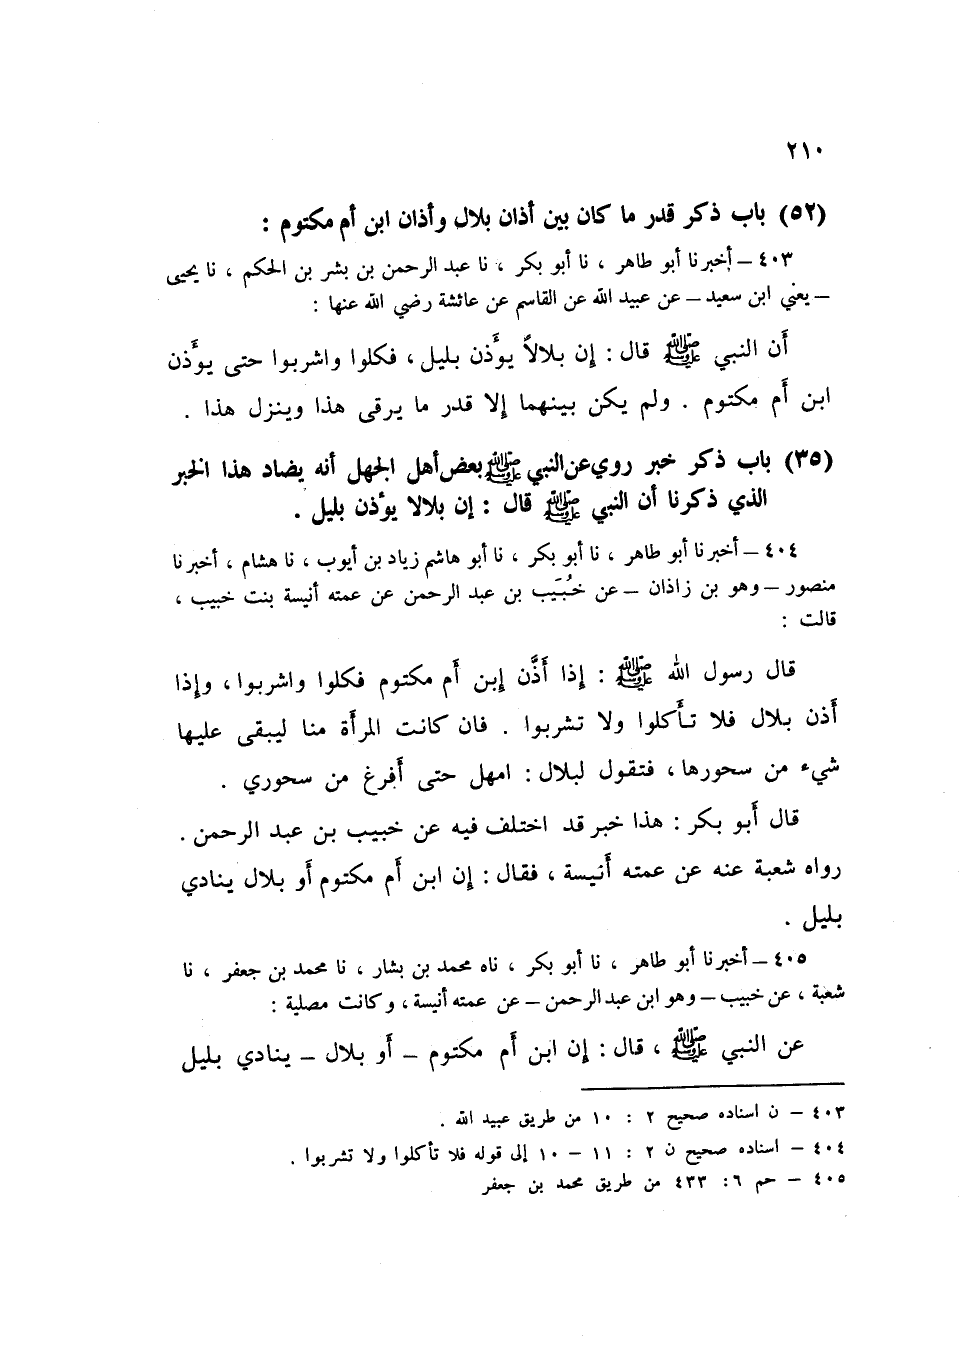 ٢١٠
(٥٢) باب ذكر قدر ما كان بين أذان بلال وأذان ابن أم مكتوم :
٤٠٣ – أخبرنا أبو طاهر ، نا أبو بكر ، نا عبد الرحمن بن بشر بن الحكم ، نا يحيى
– يعني ابن سعيد – عن عبيد الله عن القاسم عن عائشة رضي الله عنها :
أن النبي ﷺ قال : إن بلالاً يؤَذن بليل ، فكلوا واشربوا حتى يؤَذن
ابن أم مكتوم . ولم يكن بينهما إلا قدر ما يرقى هذا وينزل هذا .
(٣٥) باب ذكر خبر روي عن النبي ﷺ بعض أهل الجهل أنه يضاد هذا الخبر
الذي ذكرنا أن النبي ﷺ قال : إن بلالا يؤذن بليل .
٤٠٤ – أخبرنا أبو طاهر ، نا أبو بكر ، نا أبو هاشم زياد بن أيوب ، نا هشام ، أخبرنا
منصور – وهو بن زاذان – عن خُبَيَب بن عبد الرحمن عن عمته أنيسة بنت خبيب ،
قالت :
قال رسول الله ﷺ : إذا أذَّن إبن أم مكتوم فكلوا واشربوا ، وإذا
أذن بلال فلا تأكلوا ولا تشربوا . فان كانت المرأة منا ليبقى عليها
شيء من سحورها ، فتقول لبلال : امهل حتى أفرغ من سحوري .
قال أبو بكر : هذا خبر قد اختلف فيه عن خبيب بن عبد الرحمن .
رواه شعبة عنه عن عمته أنيسة ، فقال : إن ابن أم مكتوم أو بلال ينادي
بليل .
٤٠٥ – أخبرنا أبو طاهر ، نا أبو بكر ، ناه محمد بن بشار ، نا محمد بن جعفر ، نا
شعبة ، عن خبيب – وهو ابن عبد الرحمن – عن عمته أنيسة ، وكانت مصلية :
عن النبي ﷺ ، قال : إن ابن أم مكتوم – أو بلال – ينادي بليل
٤٠٣ – ن اسناده صحيح ٢ : ١٠ من طريق عبيد الله .
٤٠٤ – اسناده صحيح ن ٢ : ١١ – ١٠ إلى قوله فلا تأكلوا ولا تشربوا .
٤٠٥ – حم ٦ : ٤٣٣ من طريق محمد بن جعفر